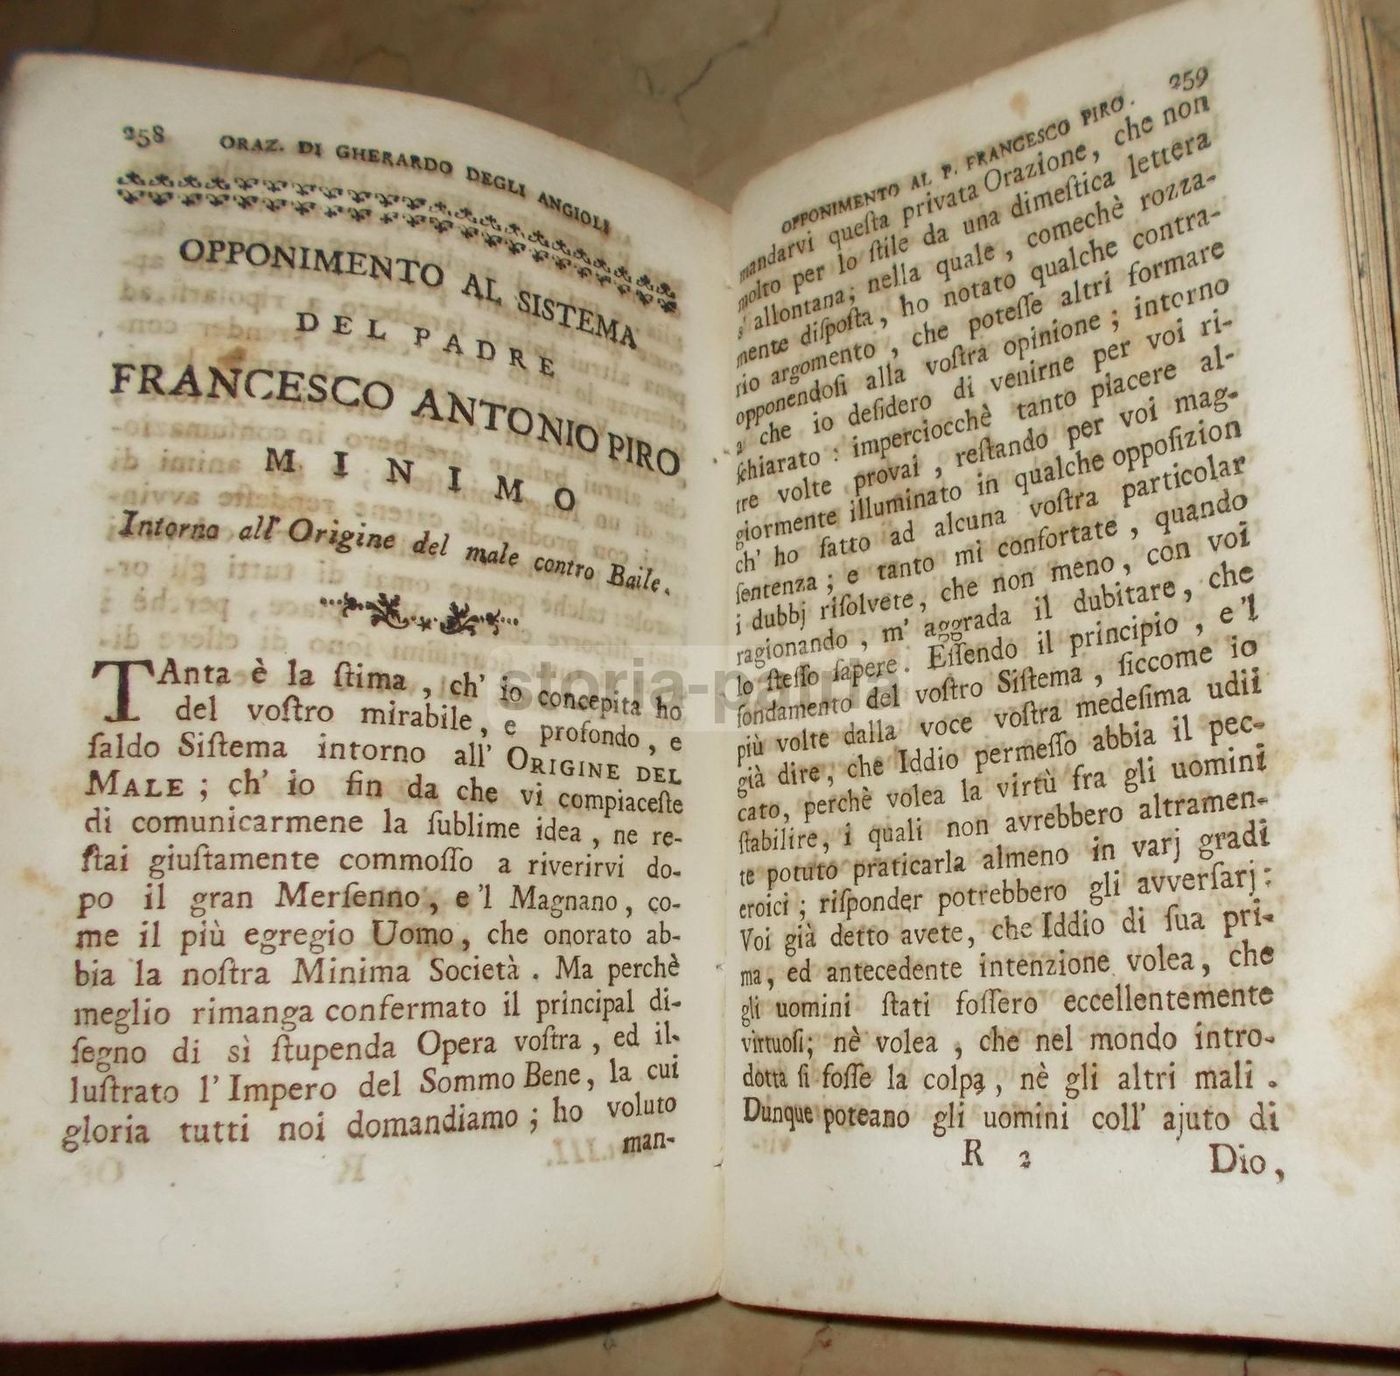 258 ORAZ. DI GHERARDO DEGLI ANGIOLI
OPPONIMENTO AL SISTEMA
DEL PADRE
FRANCESCO ANTONIO PIRO
MINIMO
Intorno all' Origine del male contro Baile.
TAnta è la ſtima, ch' io concepita ho
del voſtro mirabile, e profondo, e
ſaldo Siſtema intorno all' ORIGINE DEL
MALE; ch' io fin da che vi compiaceſte
di comunicarmene la ſublime idea, ne re-
ſtai giuſtamente commoſſo a riverirvi do-
po il gran Merſenno, e 'l Magnano, co-
me il più egregio Uomo, che onorato ab-
bia la noſtra Minima Società. Ma perchè
meglio rimanga confermato il principal di-
ſegno di sì ſtupenda Opera voſtra, ed il-
luſtrato l' Impero del Sommo Bene, la cui
gloria tutti noi domandiamo; ho voluto
man-
OPPONIMENTO AL P. FRANCESCO PIRO. 259
mandarvi queſta privata Orazione, che non
molto per lo ſtile da una dimeſtica lettera
s' allontana; nella quale, comechè rozza-
mente diſpoſta, ho notato qualche contra-
rio argomento, che poteſſe altri formare
opponendoſi alla voſtra opinione; intorno
a che io deſidero di venirne per voi ri-
ſchiarato: imperciocchè tanto piacere al-
tre volte provai, reſtando per voi mag-
giormente illuminato in qualche oppoſizion
ch' ho fatto ad alcuna voſtra particolar
ſentenza; e tanto mi confortate, quando
i dubbj riſolvete, che non meno, con voi
ragionando, m' aggrada il dubitare, che
lo ſteſſo ſapere. Eſſendo il principio, e 'l
fondamento del voſtro Siſtema, ſiccome io
più volte dalla voce voſtra medeſima udii
già dire, che Iddio permeſſo abbia il pec-
cato, perchè volea la virtù fra gli uomini
ſtabilire, i quali non avrebbero altramen-
te potuto praticarla almeno in varj gradi
eroici; riſponder potrebbero gli avverſarj:
Voi già detto avete, che Iddio di ſua pri-
ma, ed antecedente intenzione volea, che
gli uomini ſtati foſſero eccellentemente
virtuoſi; nè volea, che nel mondo intro-
dotta ſi foſſe la colpa, nè gli altri mali.
Dunque poteano gli uomini coll' ajuto di
R 2 Dio,